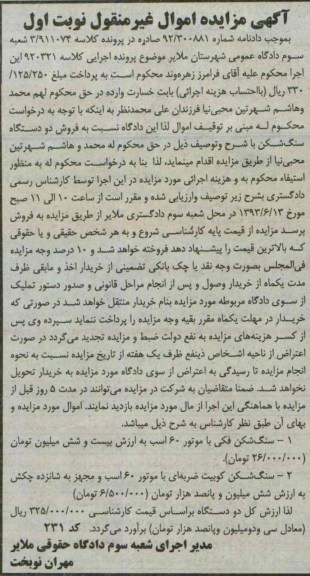 آگهی مزایده اموال غیرمنقول نوبت اول
بموجب دادنامه شماره ۹۲/۳۰۰۸۸۱ صادره در پرونده کلاسه ۳/۹۱۱۰۷۴ شعبه
سوم دادگاه عمومی شهرستان ملایر موضوع پرونده اجرایی کلاسه ۹۲۰۳۲۱
اجرا محکوم علیه آقای فرامرز زهره‌وند محکوم است به پرداخت مبلغ ۱۲۵/۲۵۰/
۳۳۰ ریال (بااحتساب هزینه اجرائی) بابت خسارت وارده در حق محکوم لهم محمد
وهاشم شهرتین محبی‌نیا فرزندان علی محمدنظر به اینکه با توجه به درخواست
محکوم له مبنی بر توقیف اموال لذا این دادگاه نسبت به فروش دو دستگاه
سنگ‌شکن با شرح وتوصیف ذیل در حق محکوم له محمد و هاشم شهرتین
محبی‌نیا از طریق مزایده اقدام مینماید، لذا بنا به درخواست محکوم له به منظور
استیفاء محکوم به و هزینه اجرائی مورد مزایده در این اجرا توسط کارشناس رسمی
دادگستری بشرح زیر توصیف وارزیابی شده و مقرر است از ساعت ۱۰ الی ۱۱ صبح
مورخ ۱۳۹۳/۶/۱۳ در محل شعبه سوم دادگستری ملایر از طریق مزایده به فروش
برسد مزایده از قیمت پایه کارشناسی شروع و به هر شخص حقیقی و یا حقوقی
که بالاترین قیمت را پیشنهاد دهد فروخته خواهد شد و ۱۰ درصد وجه مزایده
فی‌المجلس بصورت وجه نقد یا چک بانکی تضمینی از خریدار اخذ و مابقی ظرف
مدت یکماه از خریدار وصول و پس از انجام مراحل قانونی و صدور دستور تملیک
از سوی دادگاه مربوطه مورد مزایده بنام خریدار منتقل خواهد شد در صورتی که
خریدار در مهلت یکماه مقرر بقیه وجه مزایده را پرداخت ننماید سپرده وی پس
از کسر هزینه‌های مزایده به نفع دولت ضبط و مزایده تجدید می‌گردد در صورت
اعتراض از ناحیه اشخاص ذینفع ظرف یک هفته از تاریخ مزایده نسبت به نحوه
انجام مزایده تا رسیدگی به اعتراض از سوی دادگاه مورد مزایده به خریدار تحویل
نخواهد شد. ضمنا متقاضیان به شرکت در مزایده می‌توانند در مدت ۵ روز قبل از
مزایده با هماهنگی این اجرا از مال مورد مزایده بازدید نمایند. اموال مورد مزایده و
بهای آن طبق نظر کارشناس به شرح ذیل میباشد.
۱ - سنگ‌شکن فکی با موتور ۶۰ اسب به ارزش بیست و شش میلیون تومان
(۲۶/۰۰۰/۰۰۰ تومان).
۲ - سنگ‌شکن کوبیت ضربه‌ای با موتور ۶۰ اسب و مجهز به شانزده چکش
به ارزش شش میلیون و پانصد هزار تومان (۶/۵۰۰/۰۰۰ تومان)
لذا ارزش کل دو دستگاه براساس قیمت کارشناسی ۳۲۵/۰۰۰/۰۰۰ ریال
(معادل سی ودومیلیون وپانصد هزار تومان) برآورد می‌گردد. کد ۲۳۱
مدیر اجرای شعبه سوم دادگاه حقوقی ملایر
مهران نوبخت